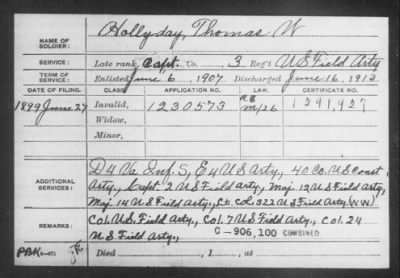 NAME OF SOLDIER: Hollyday, Thomas W
SERVICE: Late rank, Capt. Co. 3 Reg't U S Field Arty
TERM OF SERVICE: Enlisted June 6, 1907 Discharged June 16, 1913
DATE OF FILING. CLASS. APPLICATION NO. LAW. CERTIFICATE NO.
1899 June 27 Invalid, 1230573 M/26 1241,927
Widow,
Minor,
ADDITIONAL SERVICES: D 4 Va. Inf. S, E 4 U S Arty., 40 Co. U S Coast
Arty., Capt. 2 U S Field Arty., Maj. 12 U S Field Arty
Maj. 14 U S Field Arty., Lt. Col. 322 U S Field Arty. (WW)
REMARKS: Col. U.S. Field Arty., Col. 7 U S Field Arty., Col. 24
U S Field Arty., C-906,100 COMBINED
PBK
Died , 1 , at